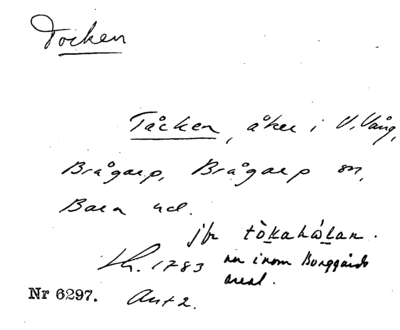 Tocken
Tåcken, åker i V. Vång,
Brågarp, Brågarp sn,
Bara hd.
jfr tòkahålan.
Lh. 1783 nu inom Borggårds
areal.
Nr 6297. Akt 2.